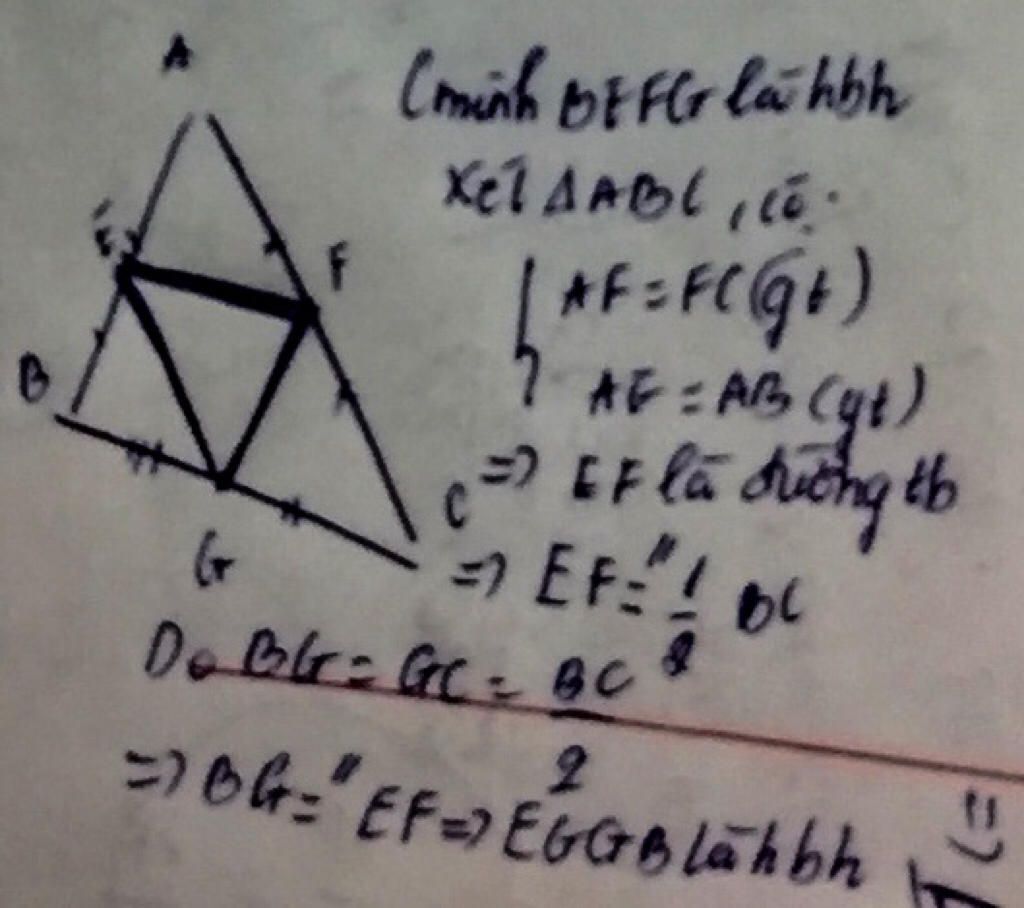 A
Cminh BEFG là hbh
Xét ΔABC, có:
E
F
AF = FC (gt)
B
AE = AB (gt)
C
=> EF là đường tb
G
=> EF = " 1/2 BC
Do BG = GC = BC/2
=> BG = " EF => EGGB là hbh